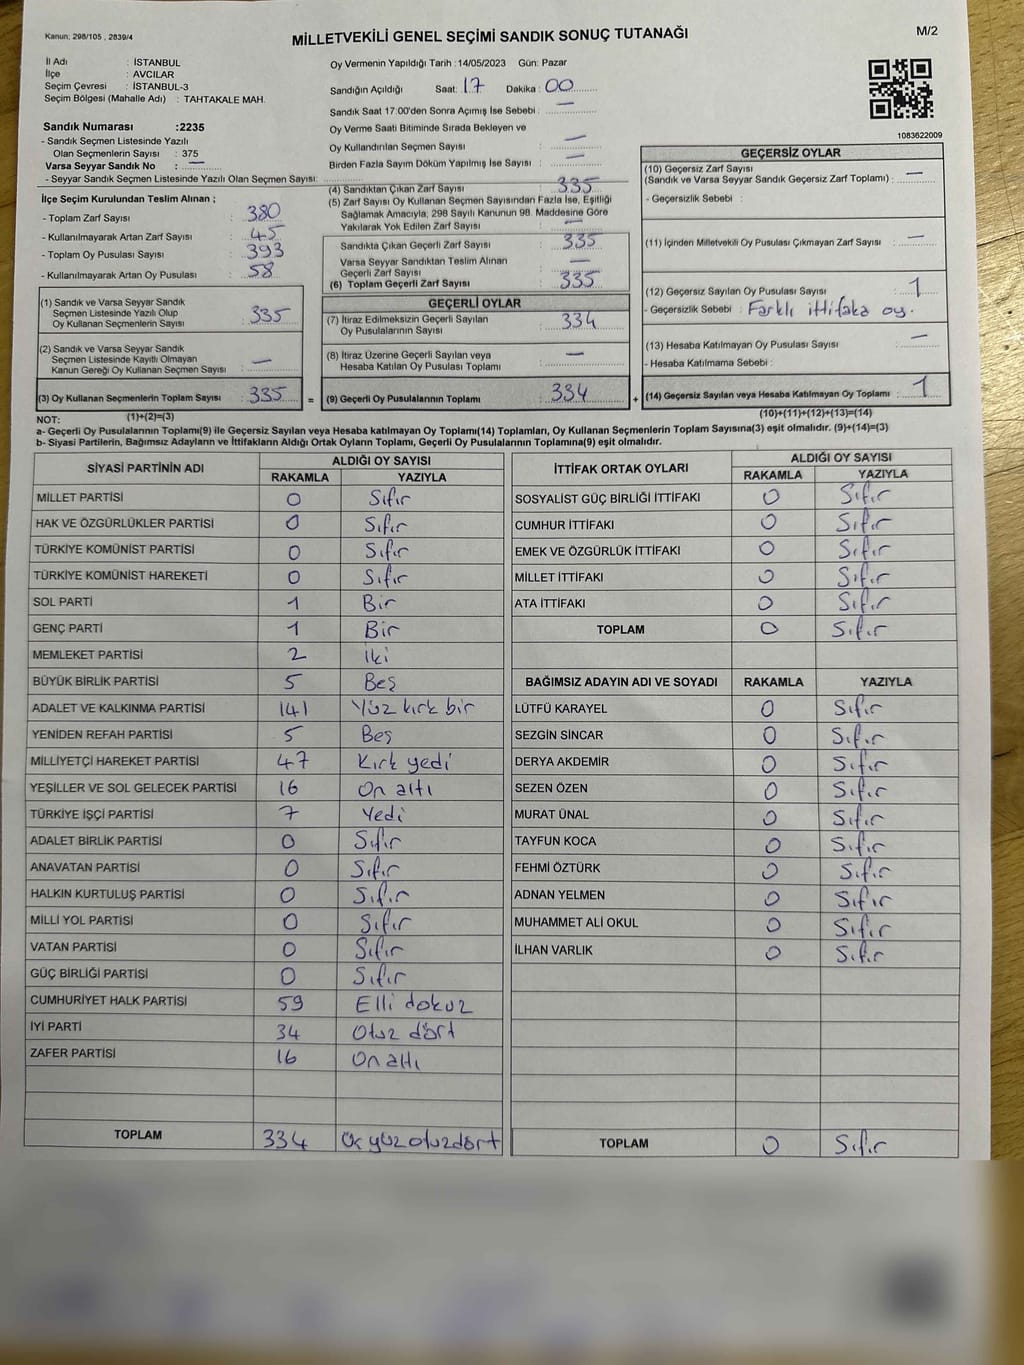 Kanun: 298/105 , 2839/4
MİLLETVEKİLİ GENEL SEÇİMİ SANDIK SONUÇ TUTANAĞI
M/2
İl Adı : İSTANBUL
İlçe : AVCILAR
Seçim Çevresi : İSTANBUL-3
Seçim Bölgesi (Mahalle Adı) : TAHTAKALE MAH.
Sandık Numarası :2235
- Sandık Seçmen Listesinde Yazılı
Olan Seçmenlerin Sayısı : 375
Varsa Seyyar Sandık No : —
- Seyyar Sandık Seçmen Listesinde Yazılı Olan Seçmen Sayısı:
Oy Vermenin Yapıldığı Tarih :14/05/2023 Gün: Pazar
Sandığın Açıldığı Saat: 17 Dakika : 00
Sandık Saat 17:00'den Sonra Açımış İse Sebebi : —
Oy Verme Saati Bitiminde Sırada Bekleyen ve
Oy Kullandırılan Seçmen Sayısı : —
Birden Fazla Sayım Döküm Yapılmış İse Sayısı : —
1083622009
İlçe Seçim Kurulundan Teslim Alınan ;
- Toplam Zarf Sayısı : 380
- Kullanılmayarak Artan Zarf Sayısı : 45
- Toplam Oy Pusulası Sayısı : 393
- Kullanılmayarak Artan Oy Pusulası : 58
(1) Sandık ve Varsa Seyyar Sandık
Seçmen Listesinde Yazılı Olup
Oy Kullanan Seçmenlerin Sayısı : 335
(2) Sandık ve Varsa Seyyar Sandık
Seçmen Listesinde Kayıtlı Olmayan
Kanun Gereği Oy Kullanan Seçmen Sayısı : —
(3) Oy Kullanan Seçmenlerin Toplam Sayısı : 335 =
(4) Sandıktan Çıkan Zarf Sayısı : 335
(5) Zarf Sayısı Oy Kullanan Seçmen Sayısından Fazla İse, Eşitliği
Sağlamak Amacıyla; 298 Sayılı Kanunun 98. Maddesine Göre
Yakılarak Yok Edilen Zarf Sayısı : —
Sandıkta Çıkan Geçerli Zarf Sayısı : 335
Varsa Seyyar Sandıktan Teslim Alınan
Geçerli Zarf Sayısı : —
(6) Toplam Geçerli Zarf Sayısı : 335
GEÇERLİ OYLAR
(7) İtiraz Edilmeksizin Geçerli Sayılan
Oy Pusulalarının Sayısı : 334
(8) İtiraz Üzerine Geçerli Sayılan veya
Hesaba Katılan Oy Pusulası Toplamı : —
(9) Geçerli Oy Pusulalarının Toplamı : 334 +
GEÇERSİZ OYLAR
(10) Geçersiz Zarf Sayısı
(Sandık ve Varsa Seyyar Sandık Geçersiz Zarf Toplamı) : —
- Geçersizlik Sebebi :
(11) İçinden Milletvekili Oy Pusulası Çıkmayan Zarf Sayısı : —
(12) Geçersiz Sayılan Oy Pusulası Sayısı : 1
- Geçersizlik Sebebi : Farklı ittifaka oy.
(13) Hesaba Katılmayan Oy Pusulası Sayısı : —
- Hesaba Katılmama Sebebi :
(14) Geçersiz Sayılan veya Hesaba Katılmayan Oy Toplamı : 1
NOT: (1)+(2)=(3) (10)+(11)+(12)+(13)=(14)
a- Geçerli Oy Pusulalarının Toplamı(9) ile Geçersiz Sayılan veya Hesaba katılmayan Oy Toplamı(14) Toplamları, Oy Kullanan Seçmenlerin Toplam Sayısına(3) eşit olmalıdır. (9)+(14)=(3)
b- Siyasi Partilerin, Bağımsız Adayların ve İttifakların Aldığı Ortak Oyların Toplamı, Geçerli Oy Pusulalarının Toplamına(9) eşit olmalıdır.
SİYASİ PARTİNİN ADI ALDIĞI OY SAYISI
RAKAMLA YAZIYLA
MİLLET PARTİSİ 0 Sıfır
HAK VE ÖZGÜRLÜKLER PARTİSİ 0 Sıfır
TÜRKİYE KOMÜNİST PARTİSİ 0 Sıfır
TÜRKİYE KOMÜNİST HAREKETİ 0 Sıfır
SOL PARTİ 1 Bir
GENÇ PARTİ 1 Bir
MEMLEKET PARTİSİ 2 İki
BÜYÜK BİRLİK PARTİSİ 5 Beş
ADALET VE KALKINMA PARTİSİ 141 Yüz kırk bir
YENİDEN REFAH PARTİSİ 5 Beş
MİLLİYETÇİ HAREKET PARTİSİ 47 Kırk yedi
YEŞİLLER VE SOL GELECEK PARTİSİ 16 On altı
TÜRKİYE İŞÇİ PARTİSİ 7 Yedi
ADALET BİRLİK PARTİSİ 0 Sıfır
ANAVATAN PARTİSİ 0 Sıfır
HALKIN KURTULUŞ PARTİSİ 0 Sıfır
MİLLİ YOL PARTİSİ 0 Sıfır
VATAN PARTİSİ 0 Sıfır
GÜÇ BİRLİĞİ PARTİSİ 0 Sıfır
CUMHURİYET HALK PARTİSİ 59 Elli dokuz
İYİ PARTİ 34 Otuz dört
ZAFER PARTİSİ 16 On altı
TOPLAM 334 üç yüz otuz dört
İTTİFAK ORTAK OYLARI ALDIĞI OY SAYISI
RAKAMLA YAZIYLA
SOSYALİST GÜÇ BİRLİĞİ İTTİFAKI 0 Sıfır
CUMHUR İTTİFAKI 0 Sıfır
EMEK VE ÖZGÜRLÜK İTTİFAKI 0 Sıfır
MİLLET İTTİFAKI 0 Sıfır
ATA İTTİFAKI 0 Sıfır
TOPLAM 0 Sıfır
BAĞIMSIZ ADAYIN ADI VE SOYADI RAKAMLA YAZIYLA
LÜTFÜ KARAYEL 0 Sıfır
SEZGİN SİNCAR 0 Sıfır
DERYA AKDEMİR 0 Sıfır
SEZEN ÖZEN 0 Sıfır
MURAT ÜNAL 0 Sıfır
TAYFUN KOCA 0 Sıfır
FEHMİ ÖZTÜRK 0 Sıfır
ADNAN YELMEN 0 Sıfır
MUHAMMET ALİ OKUL 0 Sıfır
İLHAN VARLIK 0 Sıfır
TOPLAM 0 Sıfır